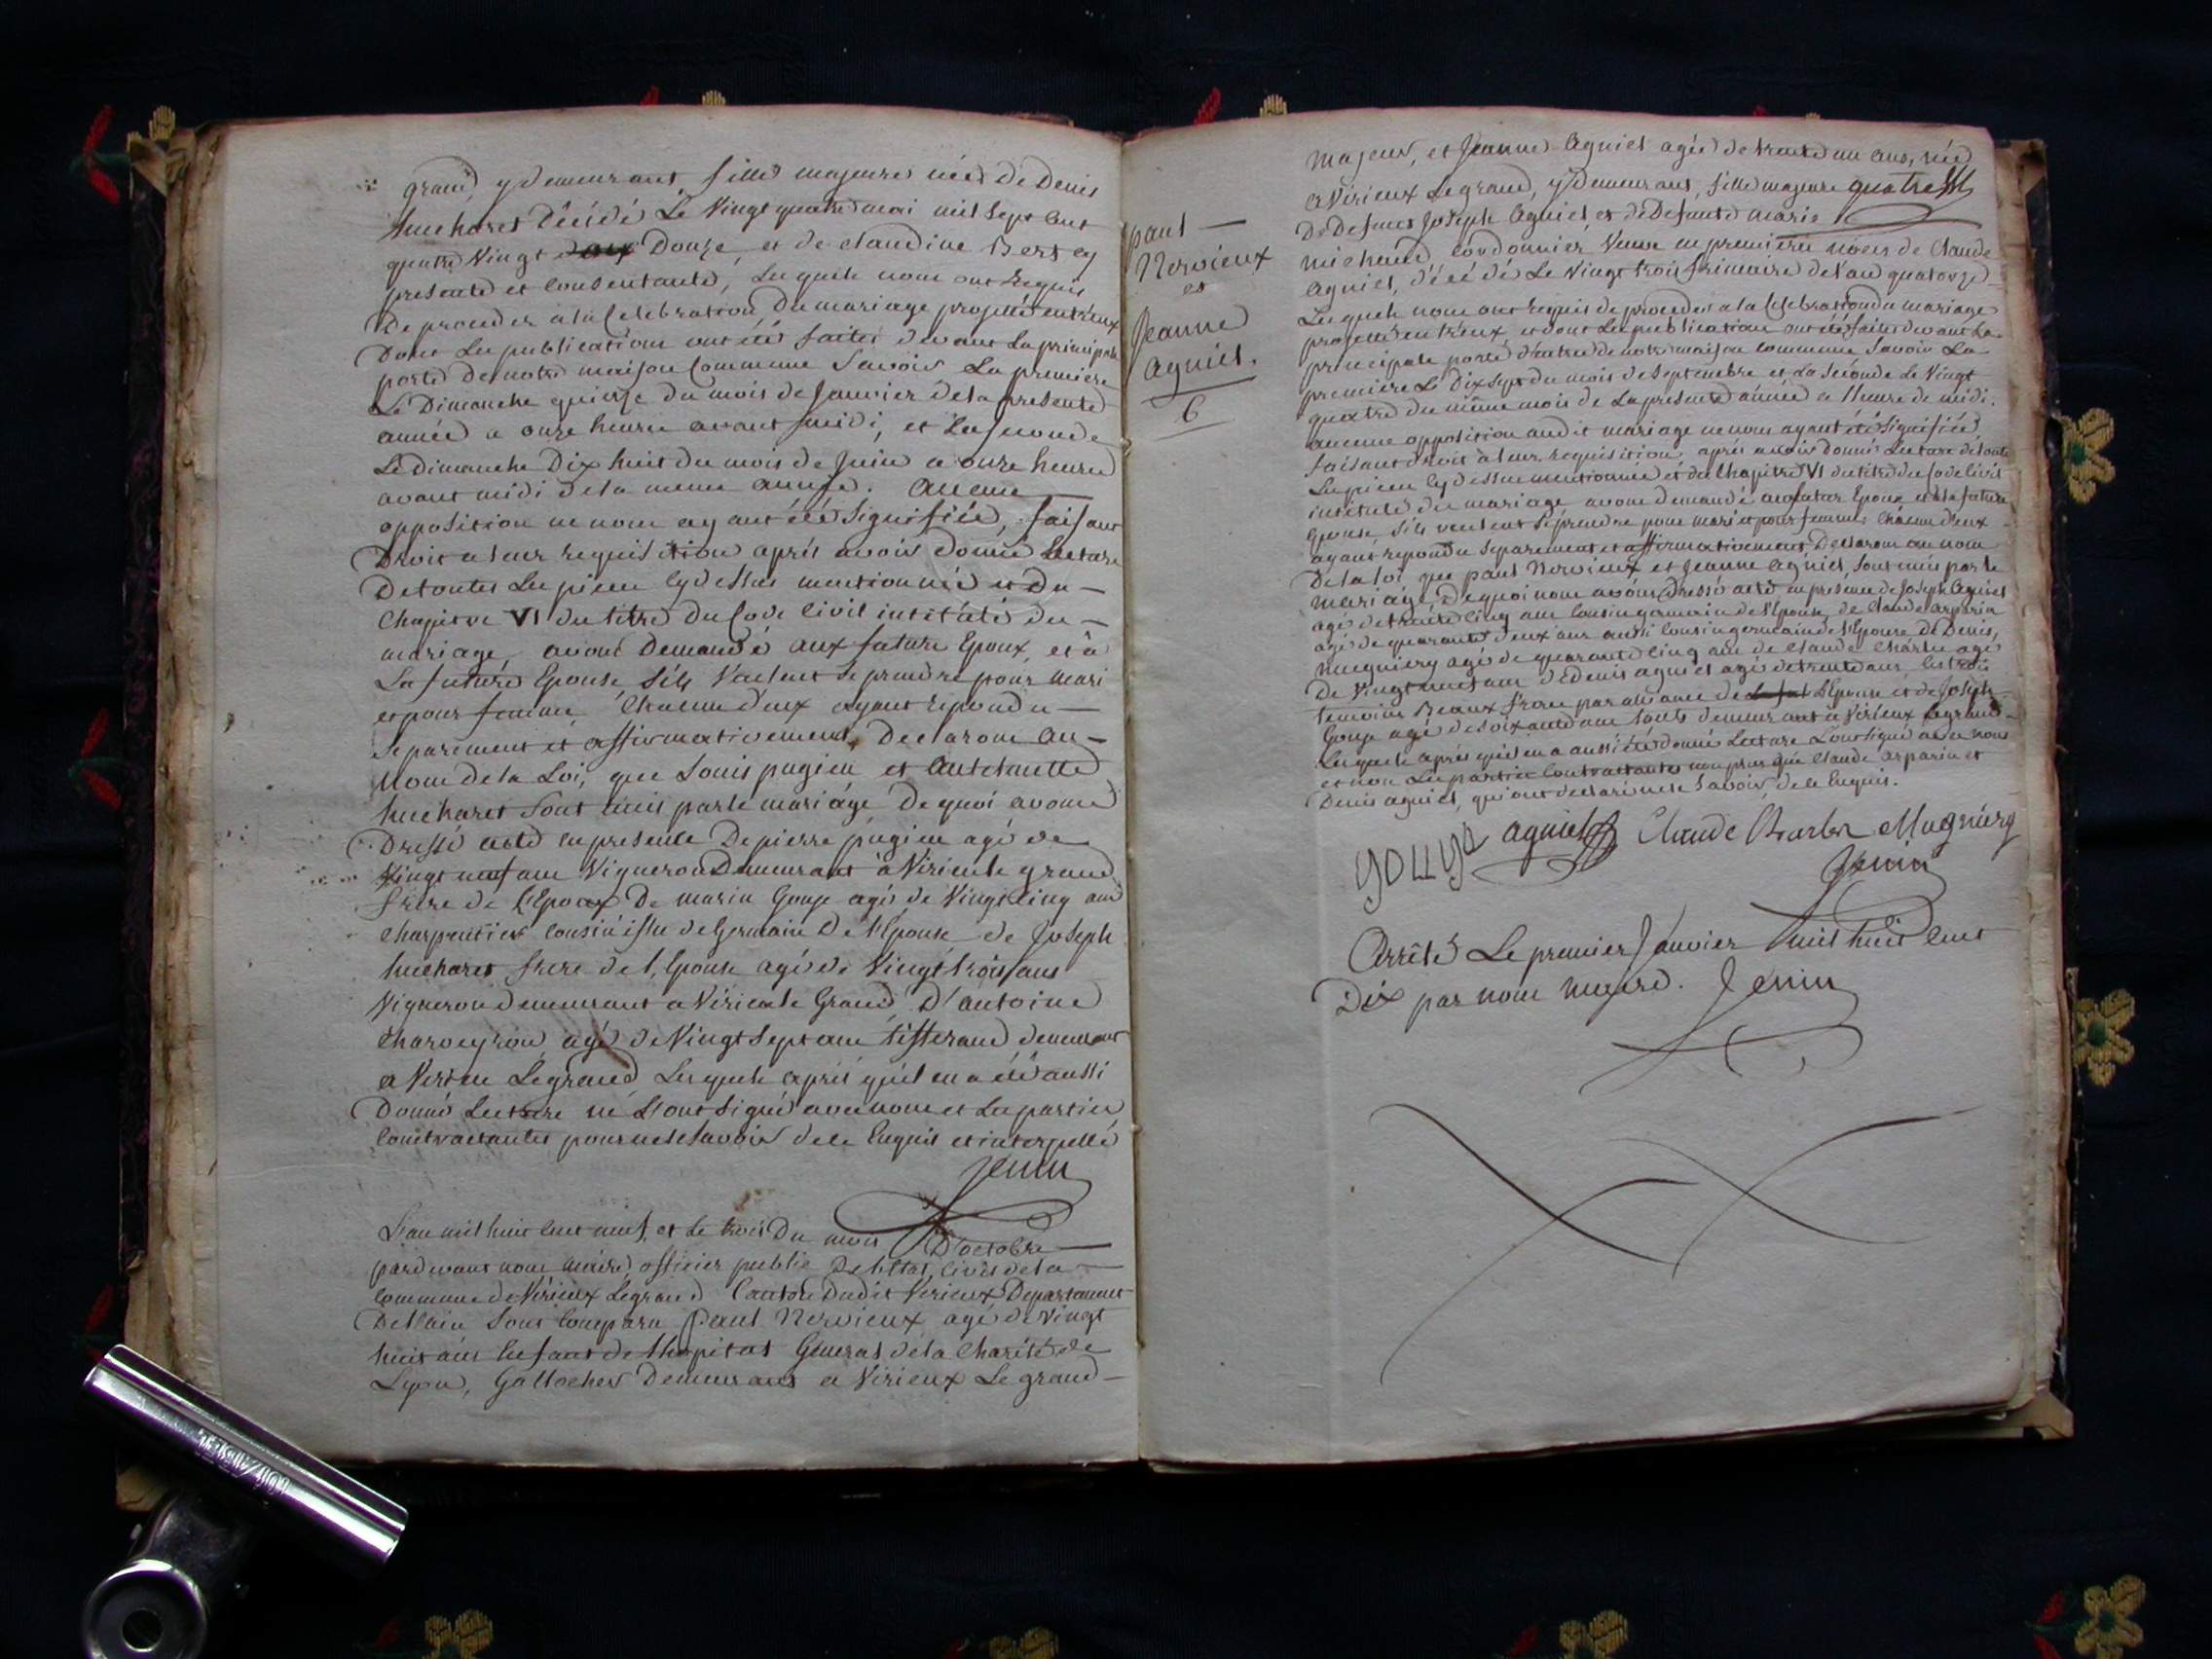 grand, y demeurant, fille majeure née de Denis
huchard décédé Le Vingt quatre mai mil sept cent
quatre Vingt Douze, et de claudine Bert cy
presente et consentante, Lesquels nous ont Requis
De proceder à la Celebration du mariage projetté entr'eux
Dont Les publications ont été faites devant La principale
porte de notre maison Commune Savoir La premiere
Le Dimanche quinze du mois de Janvier de la presente
année a onze heures avant midi, et La seconde
Le Dimanche Dix huit du mois de Juin a onze heures
avant midi de la meme année. Aucune
opposition ne nous ayant été Signifiée, faisant
Droit a leur requisition après avoir donné Lecture
De toutes Les pieces cy dessus mentionnées et Du
Chapitre VI du titre du Code Civil intitulé du
mariage, avons Demandé aux future Epoux, et à
La future Epouse, S'ils Veulent se prendre pour mari
et pour femme, Chacun d'eux ayant repondu
Separement et affirmativement, Declarons au
Nom de la Loi, que Louis pugieu et Antoinette
huchard Sont unis par le mariage De quoi avons
Dressé acte en presence De pierre pugieu agé de
Vingt neuf ans Vigneron Demeurant à Virieu le grand
frere de l'Epoux De marin Gouje agé de Vingt cinq ans
Charpentier cousin issu de Germain De l'Epouse de Joseph
huchard frere de l'Epouse agé de Vingt trois ans
Vigneron demeurant a Virieu le Grand, D'antoine
Charveyron agé de Vingt Sept ans tisserand demeurant
a Virieu Legrand Lesquels après qu'il en a été aussi
Donné Lecture ne L'ont Signé avec nous et Les parties
Contractantes pour ne le Savoir de ce Enquis et interpellé
Jenin
L'an mil huit cent neuf, et Le trois Du mois D'octobre
pardevant nous Maire officier public De l'Etat Civil de la
Commune de Virieux Legrand Canton Dudit Virieux Departement
De L'ain Sont Comparu Paul Nervieux agé de Vingt
huit ans Enfant de l'hopital General de la Charité de
Lyon, Gallocher Demeurant a Virieux Le grand
paul
Nervieux
et
Jeanne
agniel.
6
majeur, et Jeanne Agniel agée de trente un ans, née
a Virieux Legrand, y demeurant, fille majeure
De Defunt Joseph Agniel et de Defunte marie
michaud, Cordonnier, Veuve en premiere noces de Claude
Agniel, décédé Le Vingt trois frimaire de l'an quatorze
Lesquels nous ont requis de proceder a la Celebration du mariage
projetté entr'eux, et dont Les publications ont été faites devant La
principale porte d'entrée de notre maison commune, Savoir La
premiere Le Dix Sept du mois de Septembre et La Seconde Le Vingt
quatre du même mois de La presente année a l'heure de midi.
aucune opposition audit mariage ne nous ayant été Signifiée
faisant droit à leur requisition, après avoir donné Lecture de toute
Les pieces cy dessus mentionnée et du Chapitre VI du titre du Code Civil
intitulé du mariage avons demandé au futur Epoux et à la future
Epouse, S'ils veulent se prendre pour mari et pour femme, Chacun d'eux
ayant repondu Separement et affirmativement, Declarons au nom
De la loi que paul Nervieux et Jeanne Agniel, Sont unis par le
mariage, De quoi nous avons Dressé acte en presence de Joseph Agniel
agé de trente cinq ans Cousin germain de l'Epouse, de Claude arparin
agé de quarante deux ans aussi Cousin germain de l'Epouse, de Denis,
mugniery agé de quarante cinq ans de Claude Charles agé
De Vingt neuf ans de Denis agniel agé de trente ans Les trois
temoins Beaux frere par alliance de L'Epouse et de Joseph
Gouje agé de soixante ans touts demeurant a Virieux Legrand
Lesquels après qu'il en a aussi été donné Lecture L'ont Signé avec nous
et non Les parties Contractantes non plus que Claude arparin et
Denis agniel, qui ont declaré ne le Savoir, de ce Enquis.
agniel Claude Charles Mugniery
Jenin
Arrêté Le premier Janvier mil huit Cent
Dix par nous Maire. Jenin